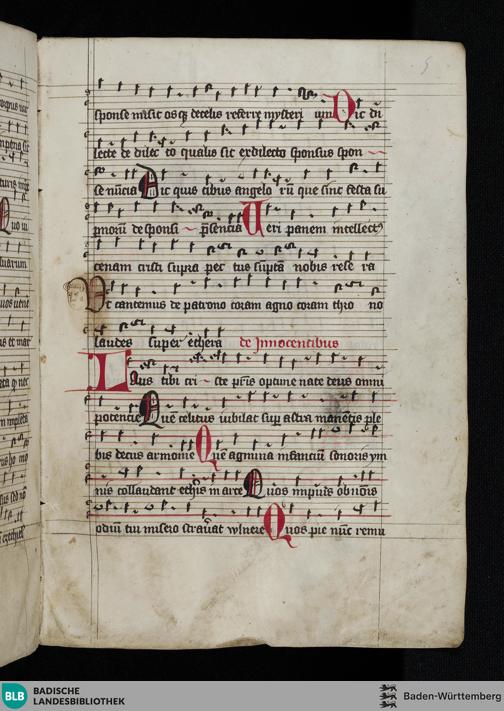 5
sponse misit osq de celis referre mysteri um Dic di
lecte de dilec to qualis sit ex dilecto sponsus spon
se nūcia Dic quis cibus angelo rū que sint festa su
pmorū de sponsi p̄sencia Veri panem intellectꝰ
cenam cristi supra pec tus suptā nobis rese ra
Vt cantemus de patrono coram agno coram thro no
laudes super ethera de Innocentibus
Laus tibi cri ste pr̄is optime nate deus omni
potencie Quē celitus iubilat sup astra manētis ple
bis decus armonie Quē agmina infanciū sonoris ym
nis collaudant ethis in arce Quos impiꝰ ob nōis
odiū tui misero strauat vulnere Quos pie nūc remu
BLB BADISCHE
LANDESBIBLIOTHEK
Baden-Württemberg